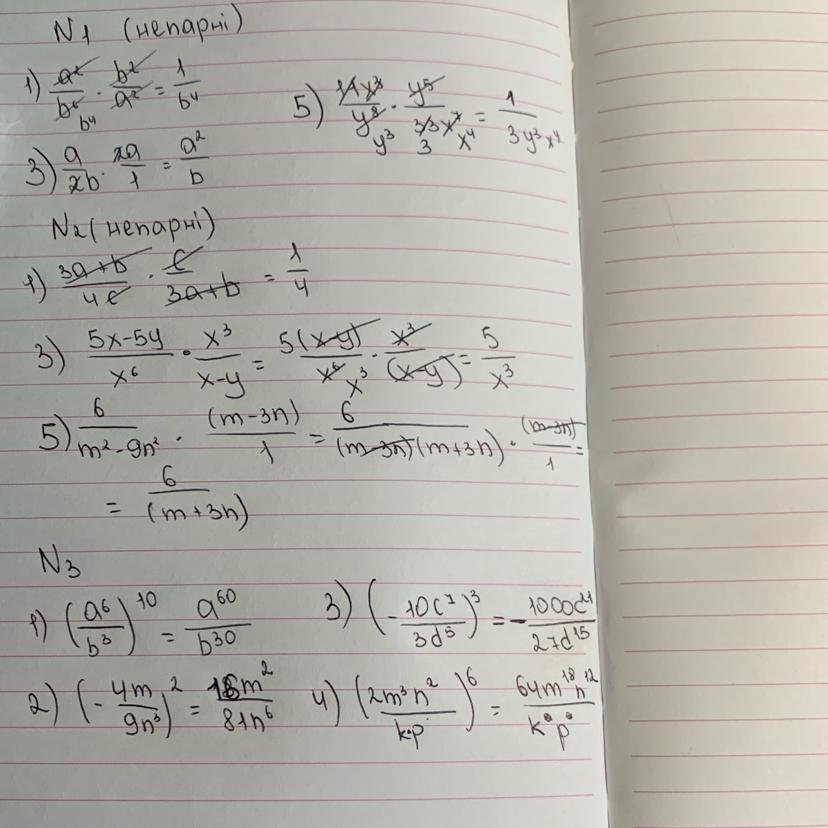 N1 (непарні)
1) a²/b⁶ · b²/a² = 1/b⁴
b⁴
5) 11x³/y⁸ · y⁵/33x⁷ = 1/3y³x⁴
y³ 3 x⁴
3) a/2b · 2a/1 = a²/b
N2 (непарні)
1) 3a+b/4c · c/3a+b = 1/4
3) 5x-5y/x⁶ · x³/x-y = 5(x-y)/x⁶ · x³/(x-y) = 5/x³
x³
5) 6/m²-9n² · (m-3n)/1 = 6/(m-3n)(m+3n) · (m-3n)/1 =
= 6/(m+3n)
N3
1) (a⁶/b³)¹⁰ = a⁶⁰/b³⁰
3) (-10c⁷/3d⁵)³ = -1000c²¹/27d¹⁵
2) (-4m/9n³)² = 16m²/81n⁶
4) (2m³n²/kp)⁶ = 64m¹⁸n¹²/k p